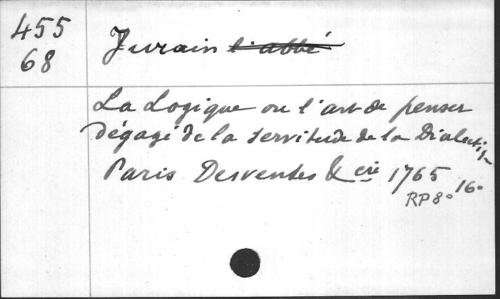 455
68
Jurain l'abbé
La Logique ou l'art de penser
dégagé de la servitude de la Dialectique
Paris Desventes & Cie 1765
16°
RP 8°